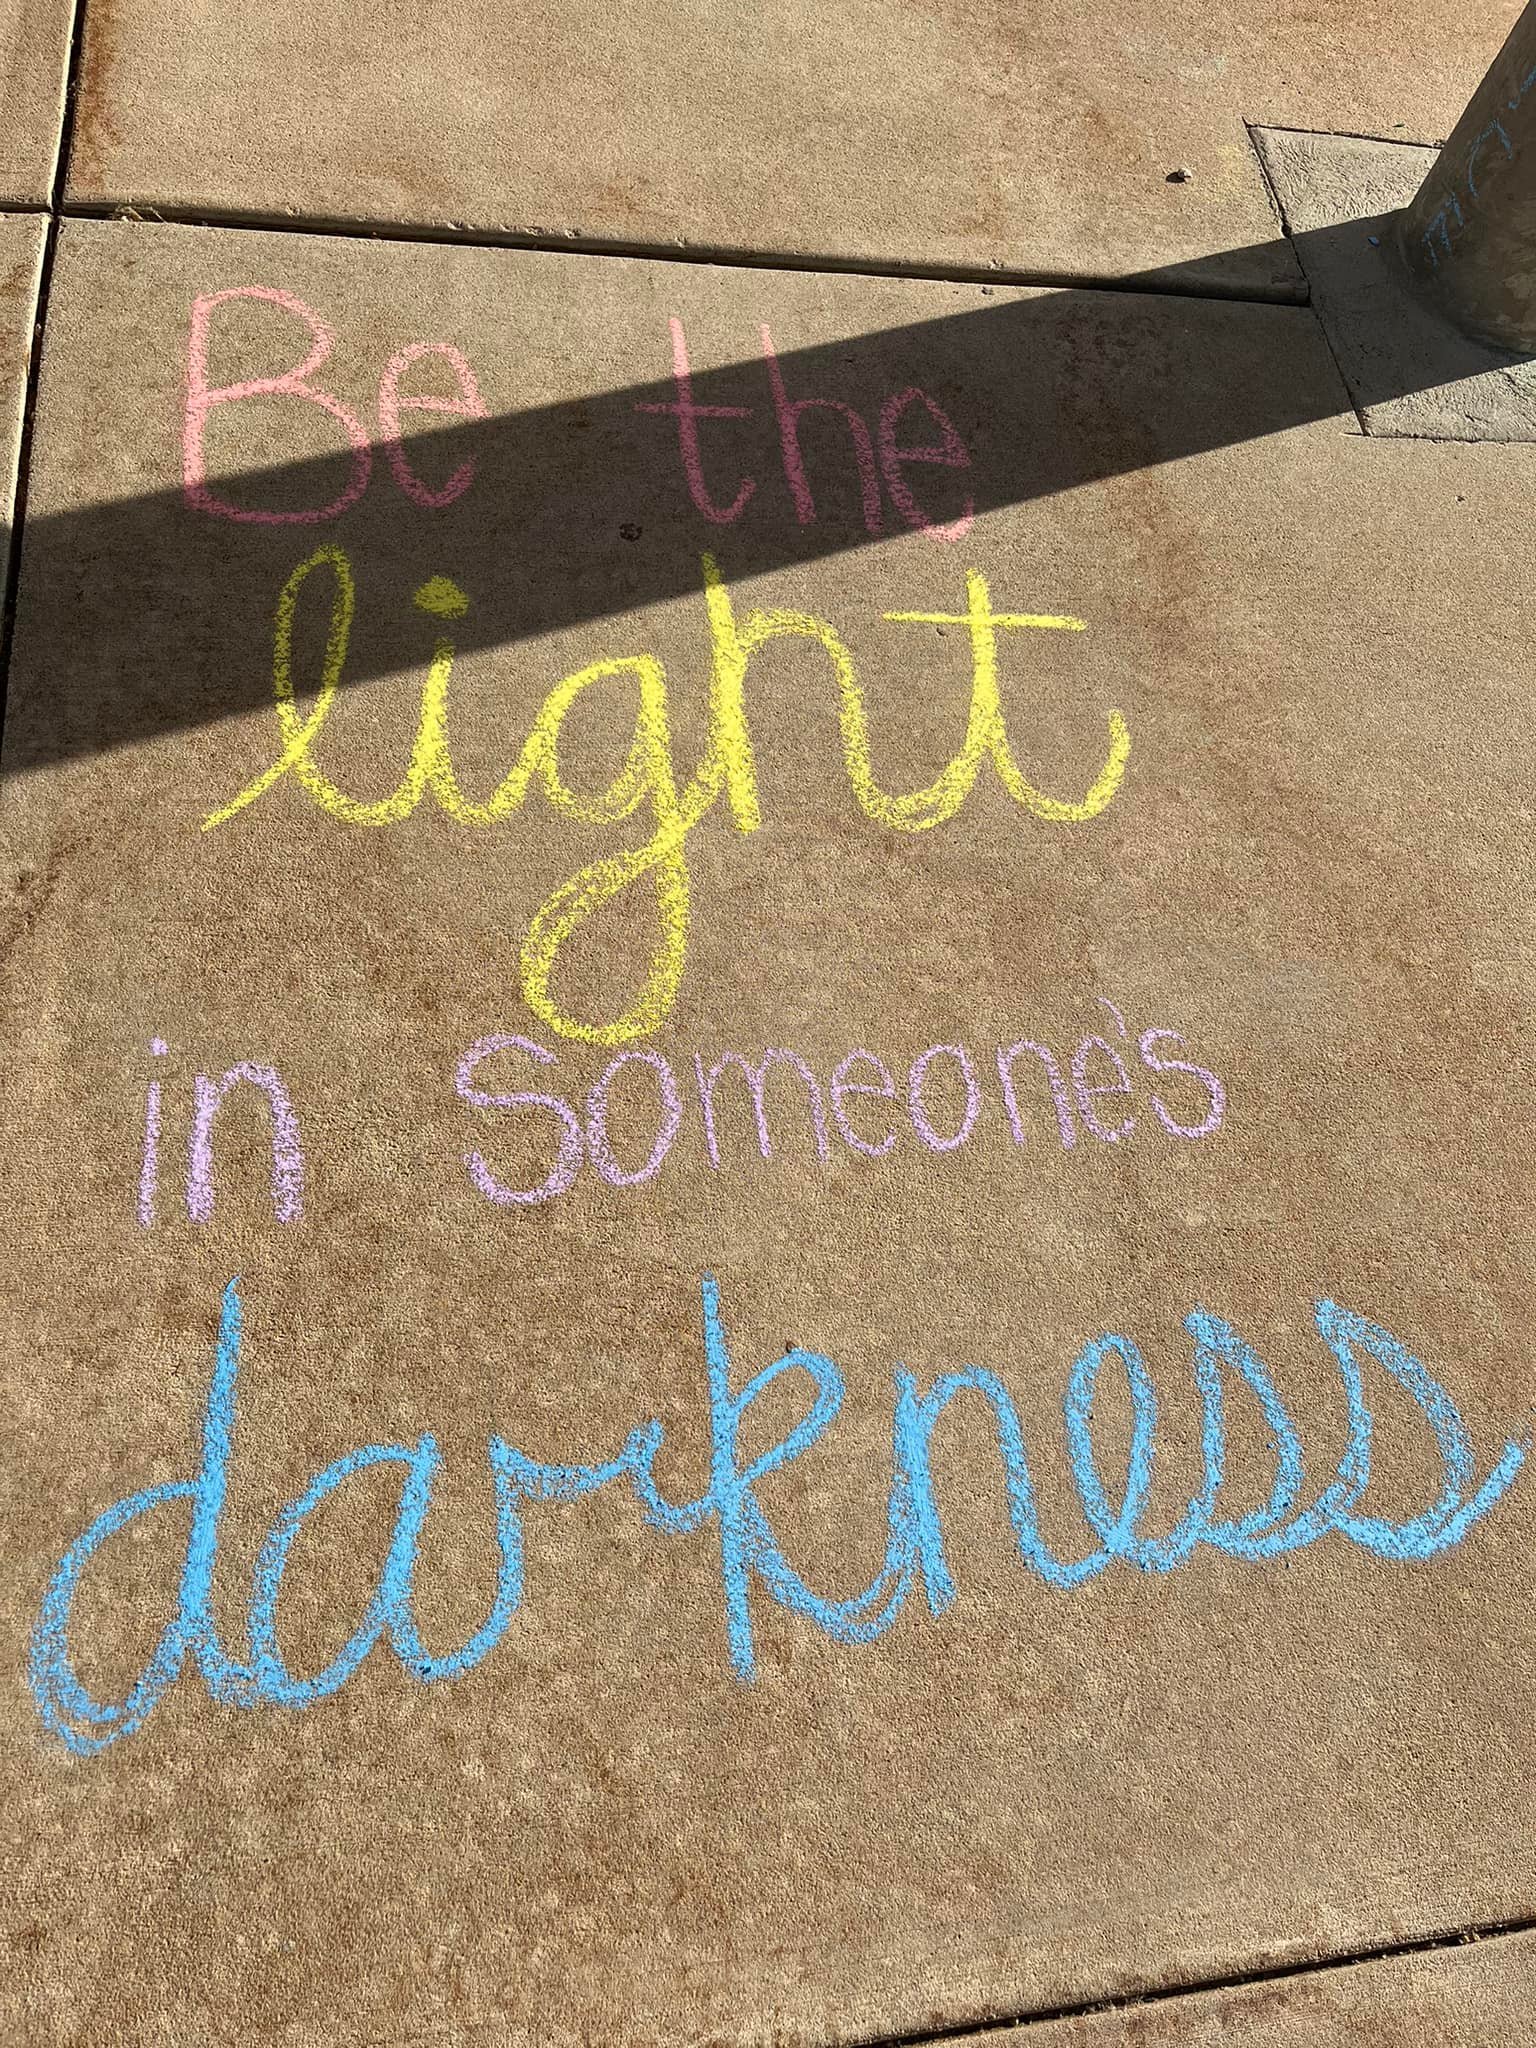 Be the
light
in someone's
darkness